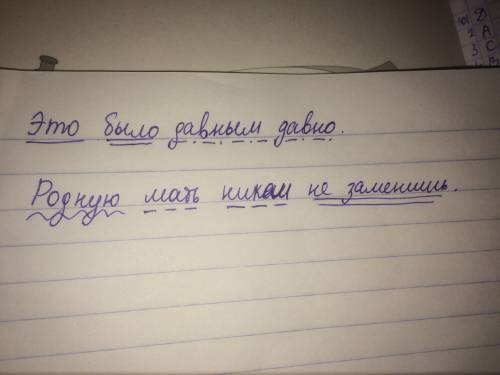 Это было давным давно.
Родную мать никем не заменишь.